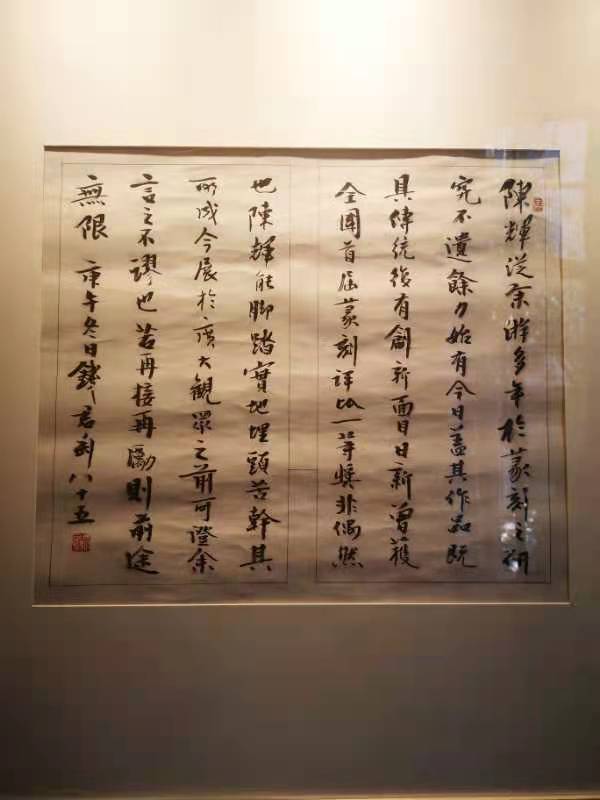 陳輝從余游多年於篆刻之研
究不遺餘力始有今日蓋其作品既
具傳統後有創新面目日新曾獲
全國首屆篆刻評比一等獎非偶然
也陳輝能脚踏實地埋頭苦幹其
所成今展於廣大觀眾之前可證余
言之不謬也若再接再勵則前途
無限 庚午冬日錢君匋八十五